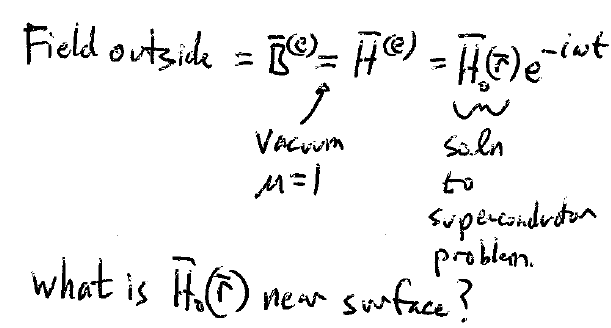 Field outside = B̄^(e) = H̄^(e) = H̄₀(r̄)e^-iωt
Vacuum
μ=1
soln
to
superconductor
problem.
What is H̄₀(r̄) near surface?